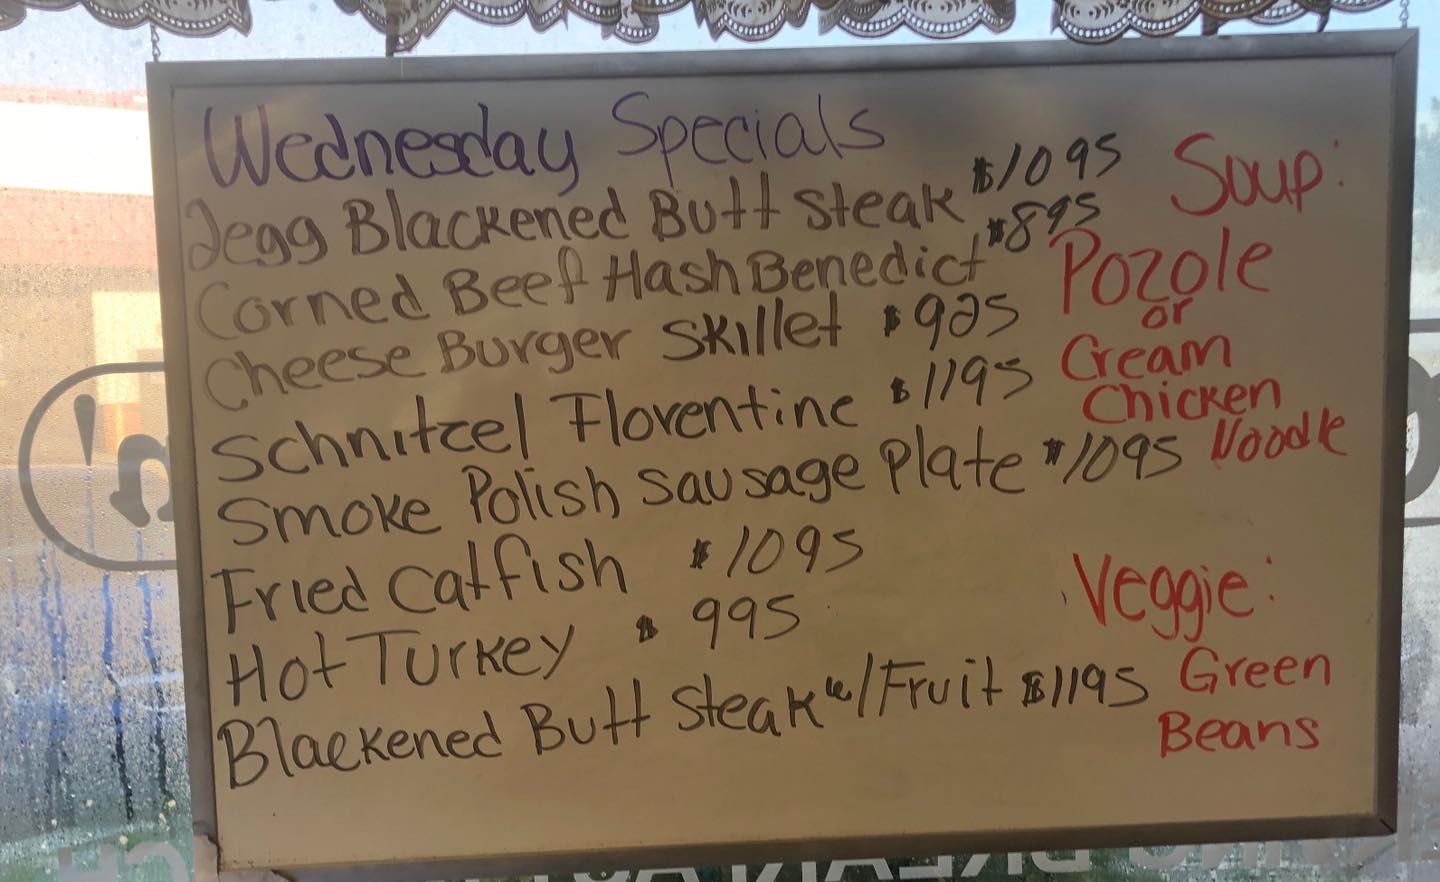 Wednesday Specials
2egg Blackened Butt Steak $1095
Corned Beef Hash Benedict $895
Cheese Burger Skillet $925
Schnitzel Florentine $1195
Smoke Polish Sausage Plate $1095
Fried Catfish $1095
Hot Turkey $995
Blackened Butt Steak w/Fruit $1195
Soup:
Pozole
or
Cream
Chicken
Noodle
Veggie:
Green
Beans